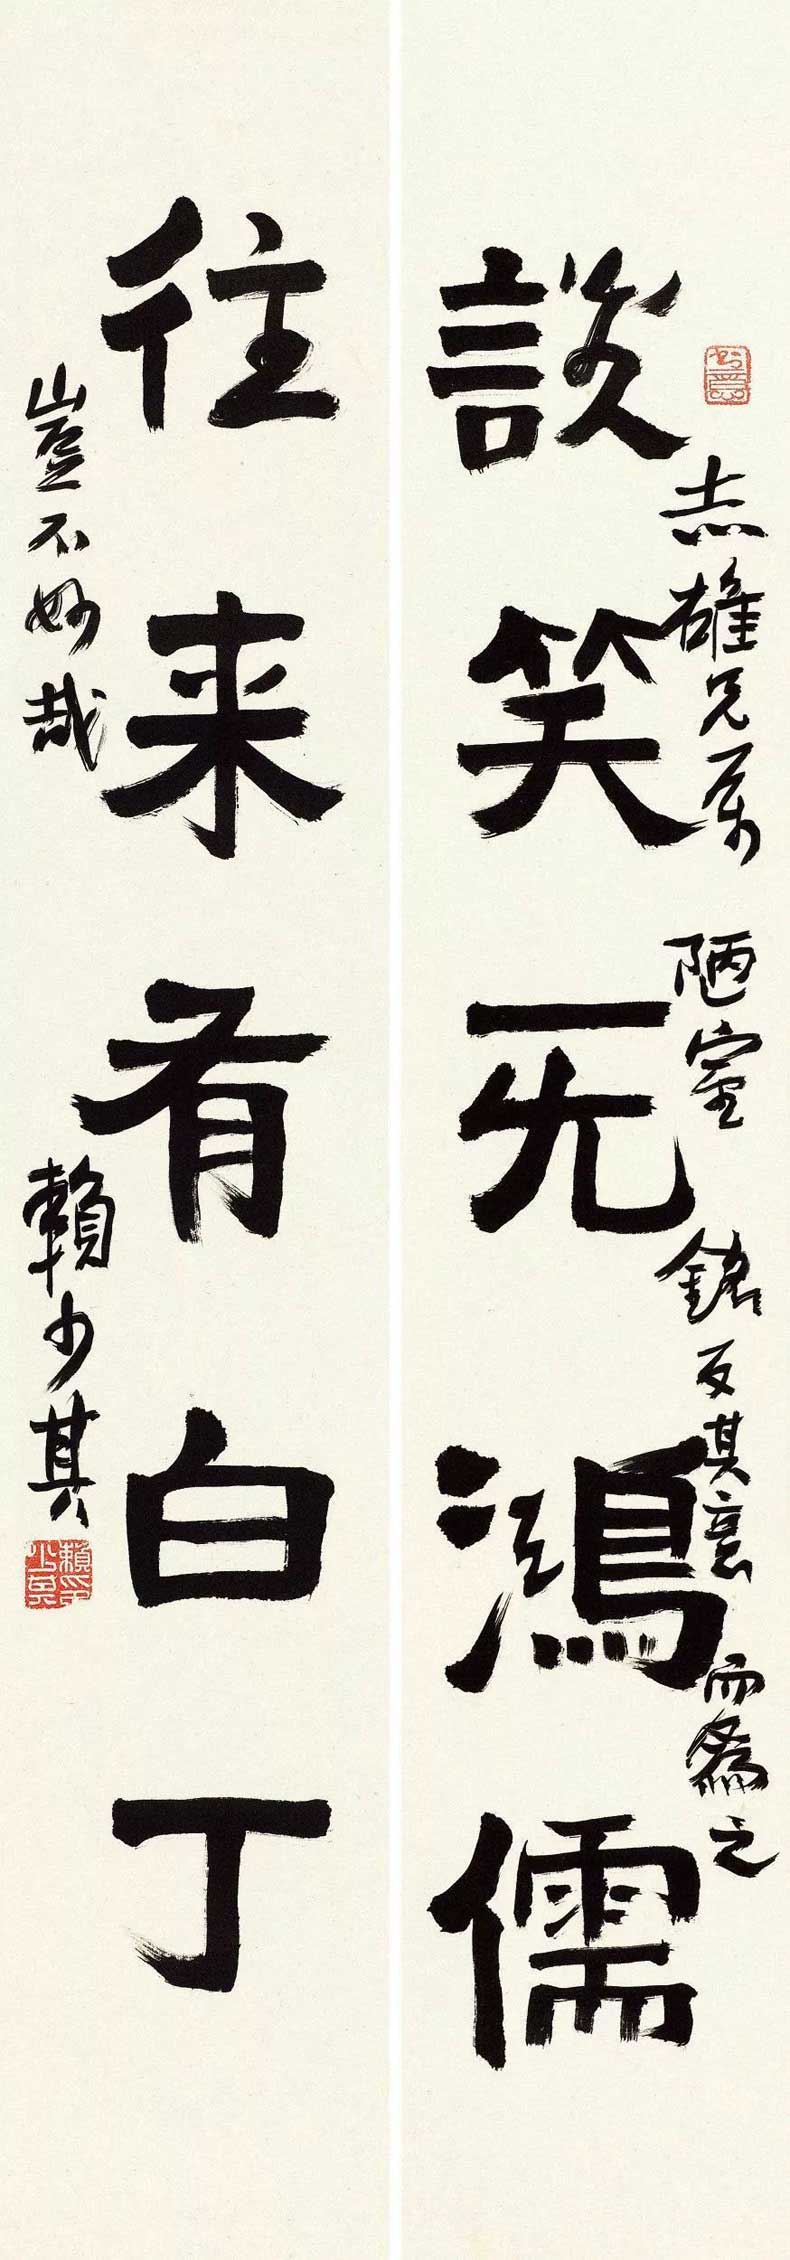 談笑无鴻儒
志雄兄属陋室銘反其意而為之
往来有白丁
豈不妙哉賴少其
賴印少其